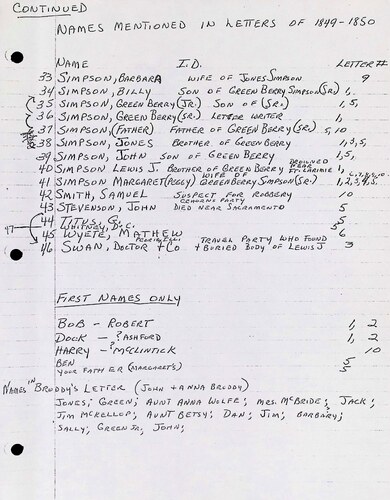 CONTINUED
NAMES MENTIONED IN LETTERS OF 1849-1850
NAME I.D. LETTER #
33 SIMPSON, BARBARA WIFE OF JONES SIMPSON 9
34 SIMPSON, BILLY SON OF GREEN BERRY SIMPSON (SR.) 1.
35 SIMPSON, GREEN BERRY (JR.) SON OF (SR.) 1, 5,
36 SIMPSON, GREEN BERRY (SR.) LETTER WRITER 1,
37 SIMPSON, (FATHER) FATHER OF GREEN BERRY (SR.) 5, 10
38 SIMPSON, JONES BROTHER OF GREEN BERRY 1, 3, 5,
39 SIMPSON, JOHN SON OF GREEN BERRY 1, 5,
40 SIMPSON LEWIS J. BROTHER OF GREEN BERRY DROWNED NEAR FT. LARIMIE 1,
41 SIMPSON MARGARET (PEGGY) WIFE OF GREEN BERRY SIMPSON (SR.) 1, 2, 3, 4, 5,
42 SMITH, SAMUEL SUSPECT FOR ROBBERY 10
43 STEVENSON, JOHN DIED NEAR SACRAMENTO 5
44 TITUS, G. 5
WHITNEY, D.C. 5
45 WYETE, MATHEW 6
46 SWAN, DOCTOR + CO TRAVEL PARTY WHO FOUND + BURIED BODY OF LEWIS J 3
47
FIRST NAMES ONLY
BOB - ROBERT 1, 2
DOCK - ? ASHFORD 1, 2
HARRY - ? MCCLINTICK 10
BEN 5
YOUR FATHER (MARGARET'S) 5
NAMES IN BRUDDY'S LETTER (JOHN + ANNA BRUDDY)
JONES; GREEN; AUNT ANNA WOLFE; MRS. MCBRIDE; JACK;
JIM MCKELLOP; AUNT BETSY; DAN; JIM; BARBARY;
SALLY; GREEN JR; JOHN;